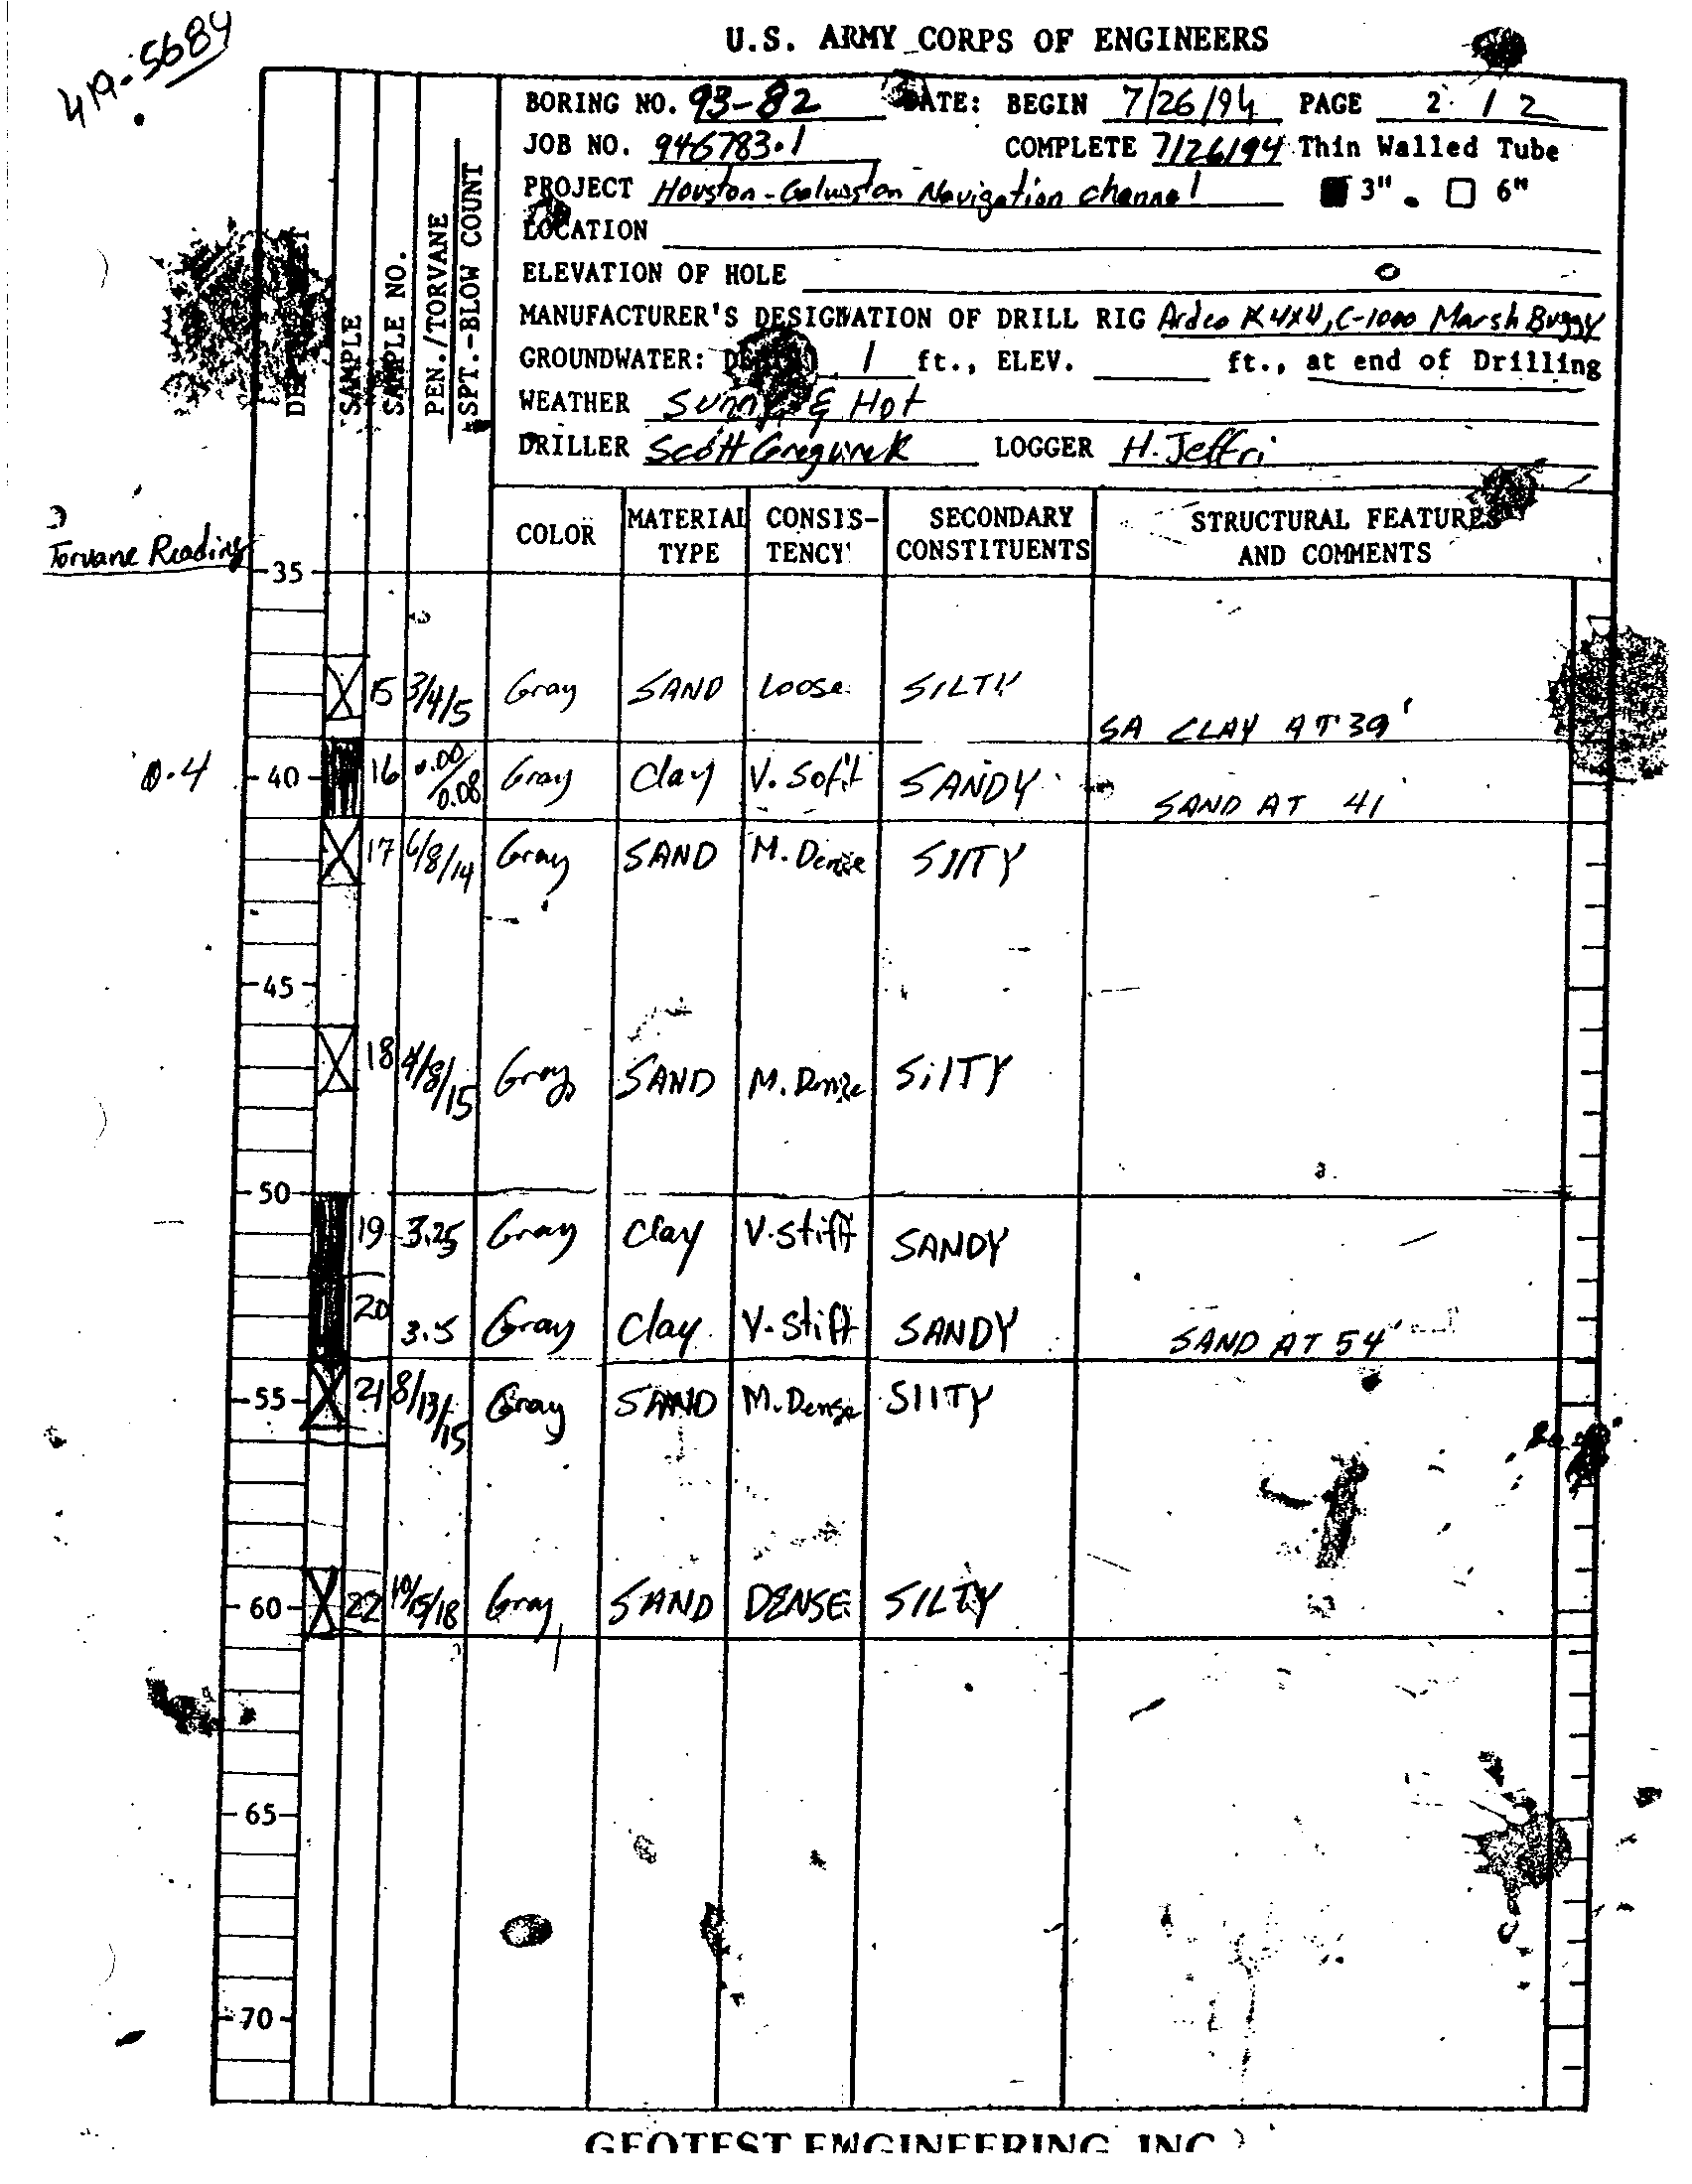 419-5684
U.S. ARMY CORPS OF ENGINEERS
BORING NO. 93-82 DATE: BEGIN 7/26/94 PAGE 2 / 2
JOB NO. 946783.1 COMPLETE 7/26/94 Thin Walled Tube
PROJECT Houston-Galveston Navigation Channel 3" 6"
LOCATION
ELEVATION OF HOLE 0
MANUFACTURER'S DESIGNATION OF DRILL RIG Ardco K 4X4, C-1000 Marsh Buggy
GROUNDWATER: 1 ft., ELEV. ft., at end of Drilling
WEATHER Sunny & Hot
DRILLER Scott LOGGER H. Jeffri
SAMPLE
SAMPLE NO.
PEN./TORVANE
SPT.-BLOW COUNT
COLOR MATERIAL TYPE CONSIS-TENCY SECONDARY CONSTITUENTS STRUCTURAL FEATURES AND COMMENTS
Torvane Reading
35
15 3/4/5 Gray SAND Loose SILTY
SA CLAY AT 39'
0.4 40 16 0.00/0.08 Gray Clay V. Soft SANDY
SAND AT 41'
17 6/8/14 Gray SAND M. Dense SIlTY
45
18 4/8/15 Gray SAND M. Dense SilTY
50
19 3.25 Gray Clay V. Stiff SANDY
20 3.5 Gray Clay V. Stiff SANDY SAND AT 54'
55 21 8/13/15 Gray SAND M. Dense SIlTY
60 22 10/15/18 Gray SAND DENSE SILTY
65
70
GEOTEST ENGINEERING, INC.